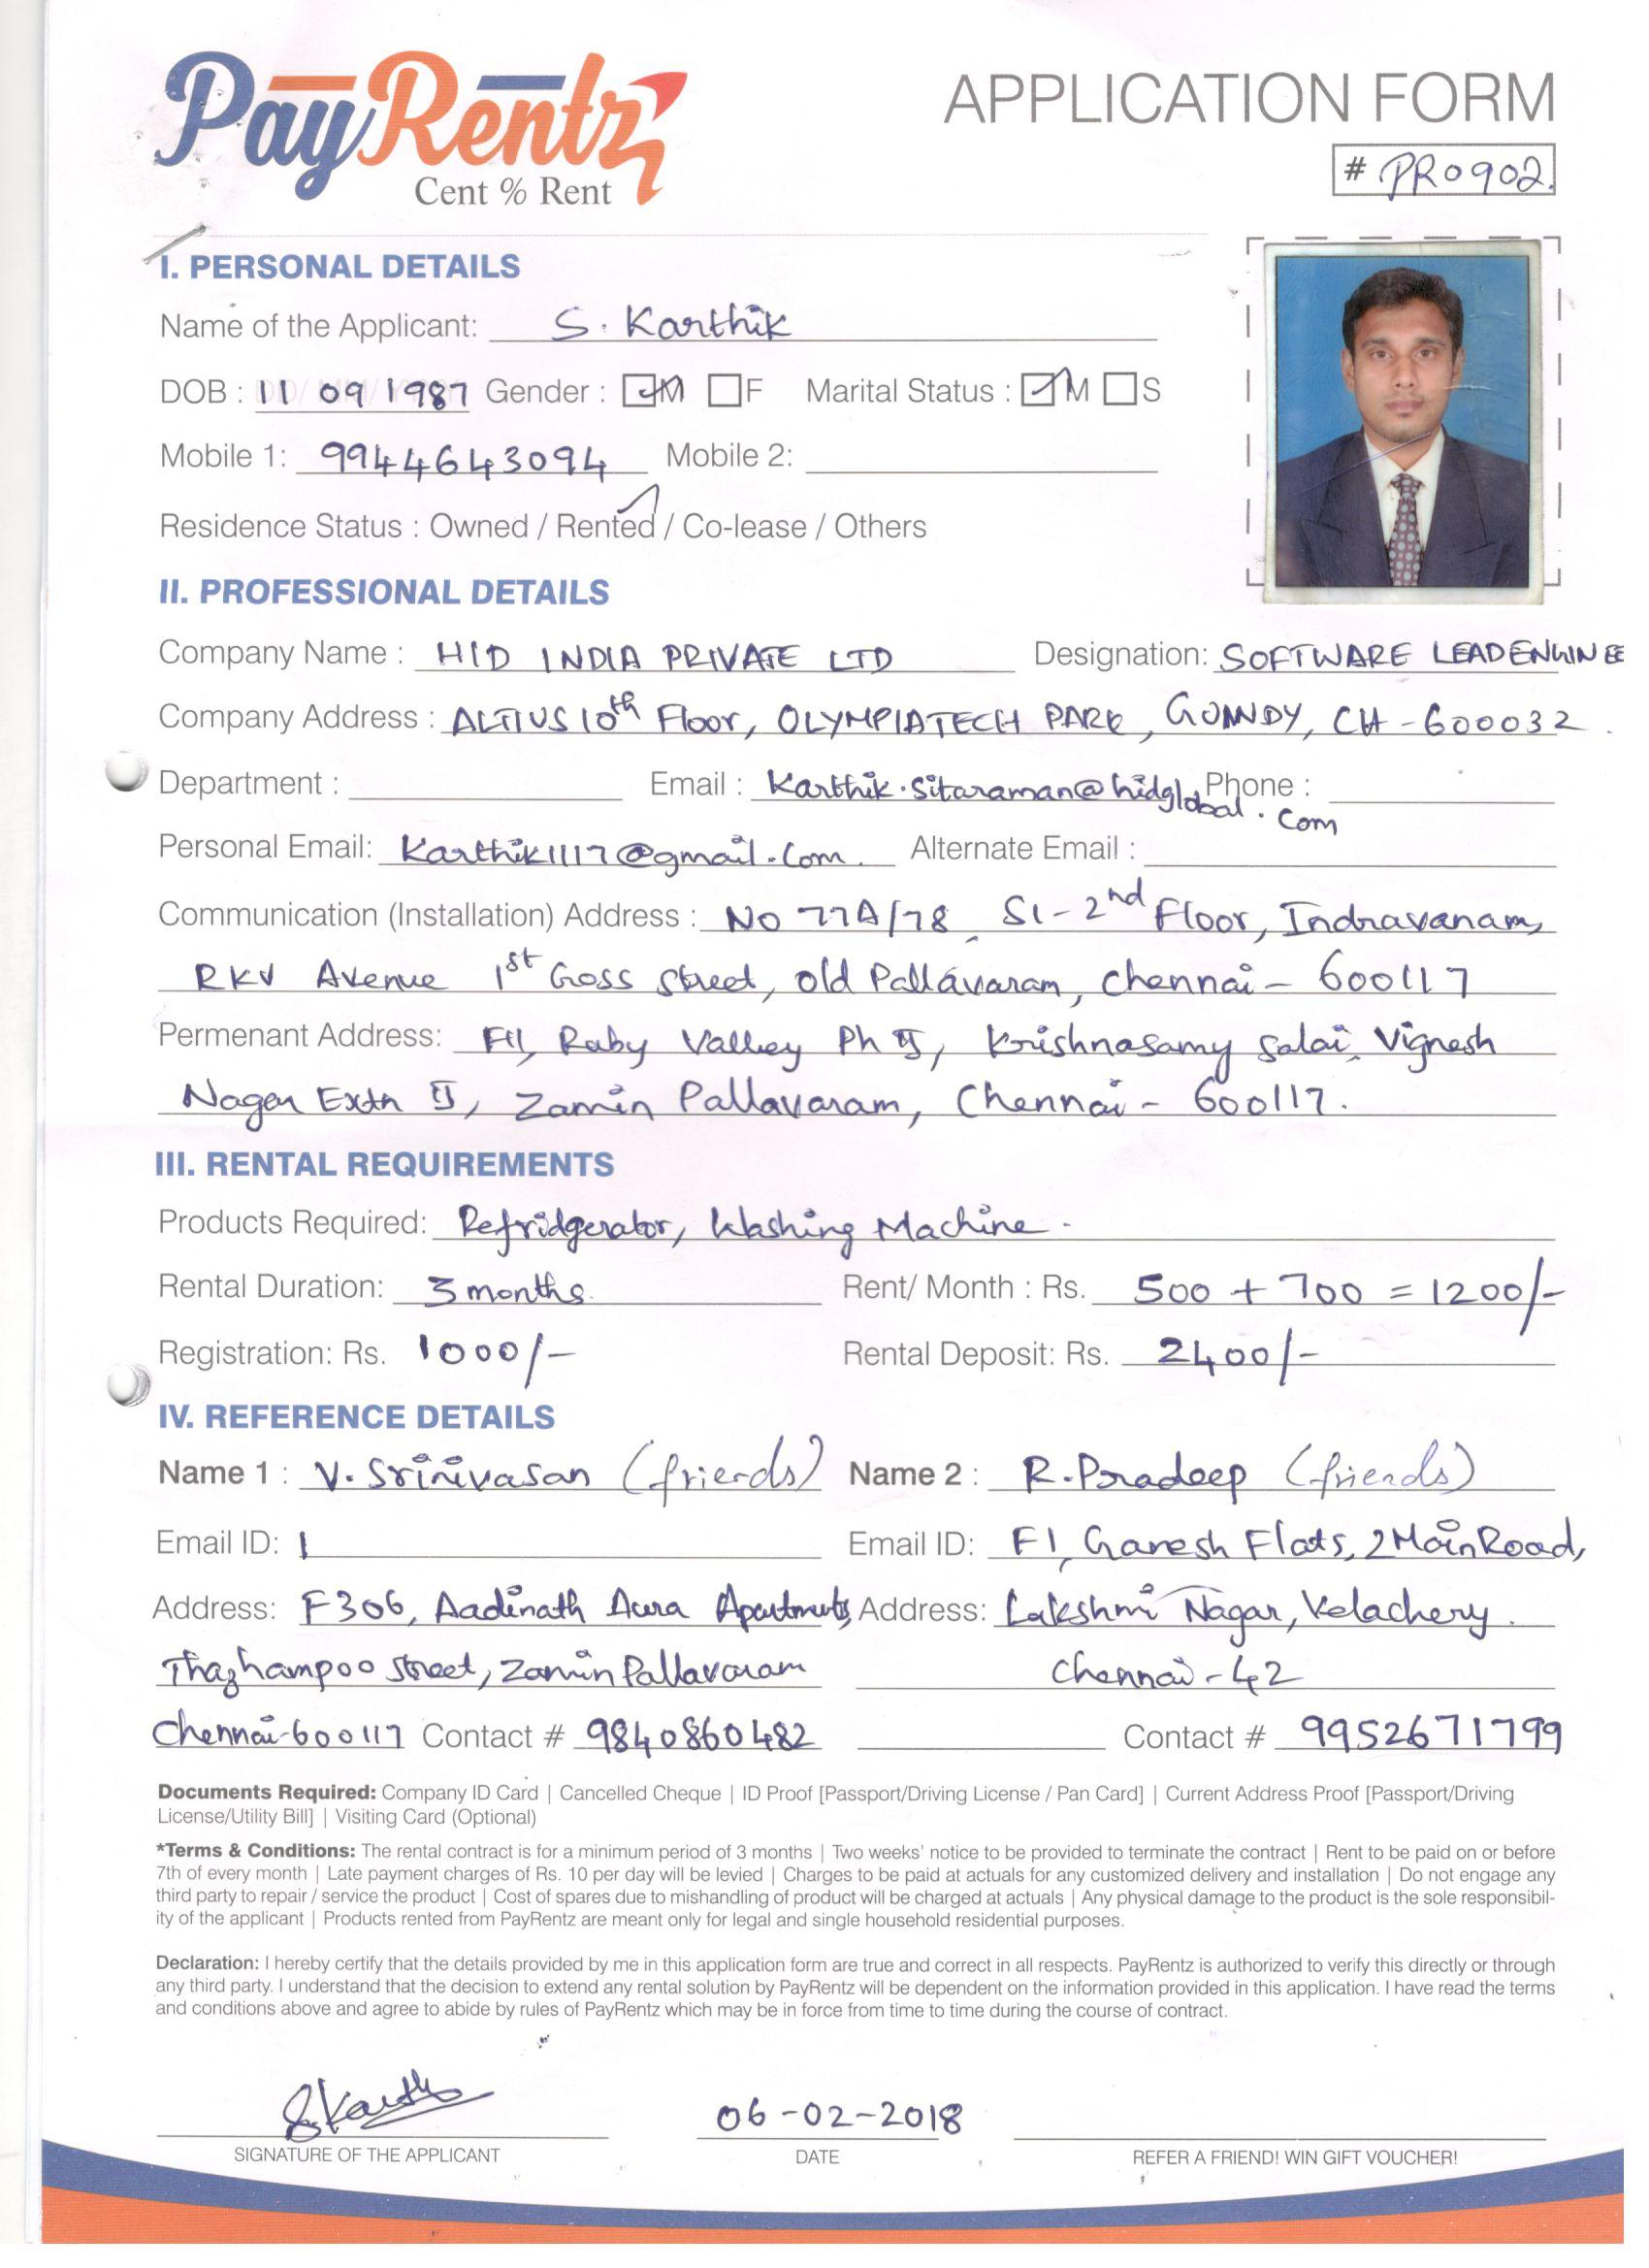 PayRentz
Cent % Rent
APPLICATION FORM
# PR0902.
I. PERSONAL DETAILS
Name of the Applicant: S. Karthik
DOB : 11 09 1987 Gender : M F Marital Status : M S
Mobile 1: 9944643094 Mobile 2:
Residence Status : Owned / Rented / Co-lease / Others
II. PROFESSIONAL DETAILS
Company Name : HID INDIA PRIVATE LTD Designation: SOFTWARE LEAD ENGINEE
Company Address : ALTIUS 10th Floor, OLYMPIATECH PARK, GUINDY, CH - 600032.
Department : Email : Karthik.Sitaraman@hidglobal.com Phone :
Personal Email: Karthik1117@gmail.com. Alternate Email :
Communication (Installation) Address : No 77A/78, S1 - 2nd Floor, Indravanam,
RKV Avenue 1st Cross Street, old Pallavaram, Chennai - 600117
Permenant Address: F11, Raby Valley Ph II, Krishnasamy Salai, Vignesh
Nagar Extn II, Zamin Pallavaram, Chennai - 600117.
III. RENTAL REQUIREMENTS
Products Required: Refridgerator, Washing Machine.
Rental Duration: 3 months. Rent/ Month : Rs. 500 + 700 = 1200/-
Registration: Rs. 1000/- Rental Deposit: Rs. 2400/-
IV. REFERENCE DETAILS
Name 1 : V. Srinivasan (friends) Name 2 : R. Pradeep (friends)
Email ID: Email ID: F1, Ganesh Flats, 2 Main Road,
Address: F306, Aadinath Aura Apartments, Address: Lakshmi Nagar, Velachery.
Thazhampoo Street, Zamin Pallavaram Chennai - 42
Chennai-600117 Contact # 9840860482 Contact # 9952671799
Documents Required: Company ID Card | Cancelled Cheque | ID Proof [Passport/Driving License / Pan Card] | Current Address Proof [Passport/Driving
License/Utility Bill] | Visiting Card (Optional)
*Terms & Conditions: The rental contract is for a minimum period of 3 months | Two weeks' notice to be provided to terminate the contract | Rent to be paid on or before
7th of every month | Late payment charges of Rs. 10 per day will be levied | Charges to be paid at actuals for any customized delivery and installation | Do not engage any
third party to repair / service the product | Cost of spares due to mishandling of product will be charged at actuals | Any physical damage to the product is the sole responsibil-
ity of the applicant | Products rented from PayRentz are meant only for legal and single household residential purposes.
Declaration: I hereby certify that the details provided by me in this application form are true and correct in all respects. PayRentz is authorized to verify this directly or through
any third party. I understand that the decision to extend any rental solution by PayRentz will be dependent on the information provided in this application. I have read the terms
and conditions above and agree to abide by rules of PayRentz which may be in force from time to time during the course of contract.
S Karth
06-02-2018
SIGNATURE OF THE APPLICANT DATE REFER A FRIEND! WIN GIFT VOUCHER!